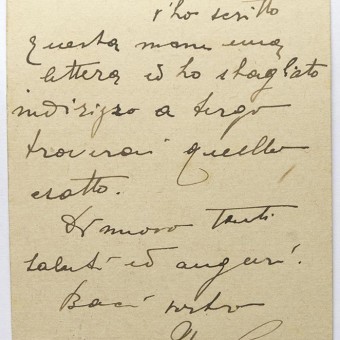 t'ho scritto
questa mane una
lettera ed ho sbagliato
indirizzo a tergo
troverai quello
esatto.
Di nuovo tanti
saluti ed auguri.
Baci vostro